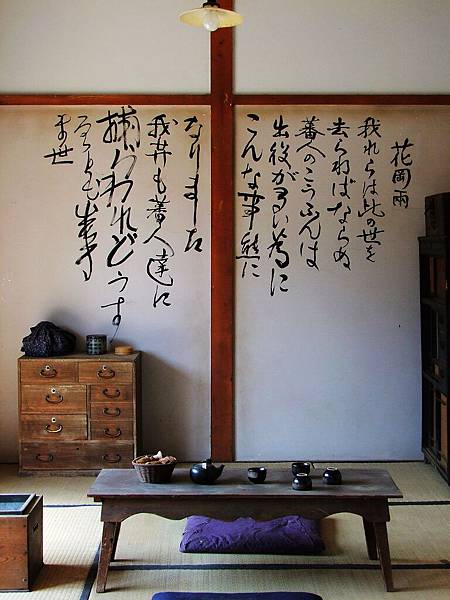 花岡
我れらは此の世を
去らねばならぬ
蕃人のこうふんは
出役が多い為に
こんな事態に
なりました
我等も蕃人達に
捕らわれどうす
ることも出来
ま世